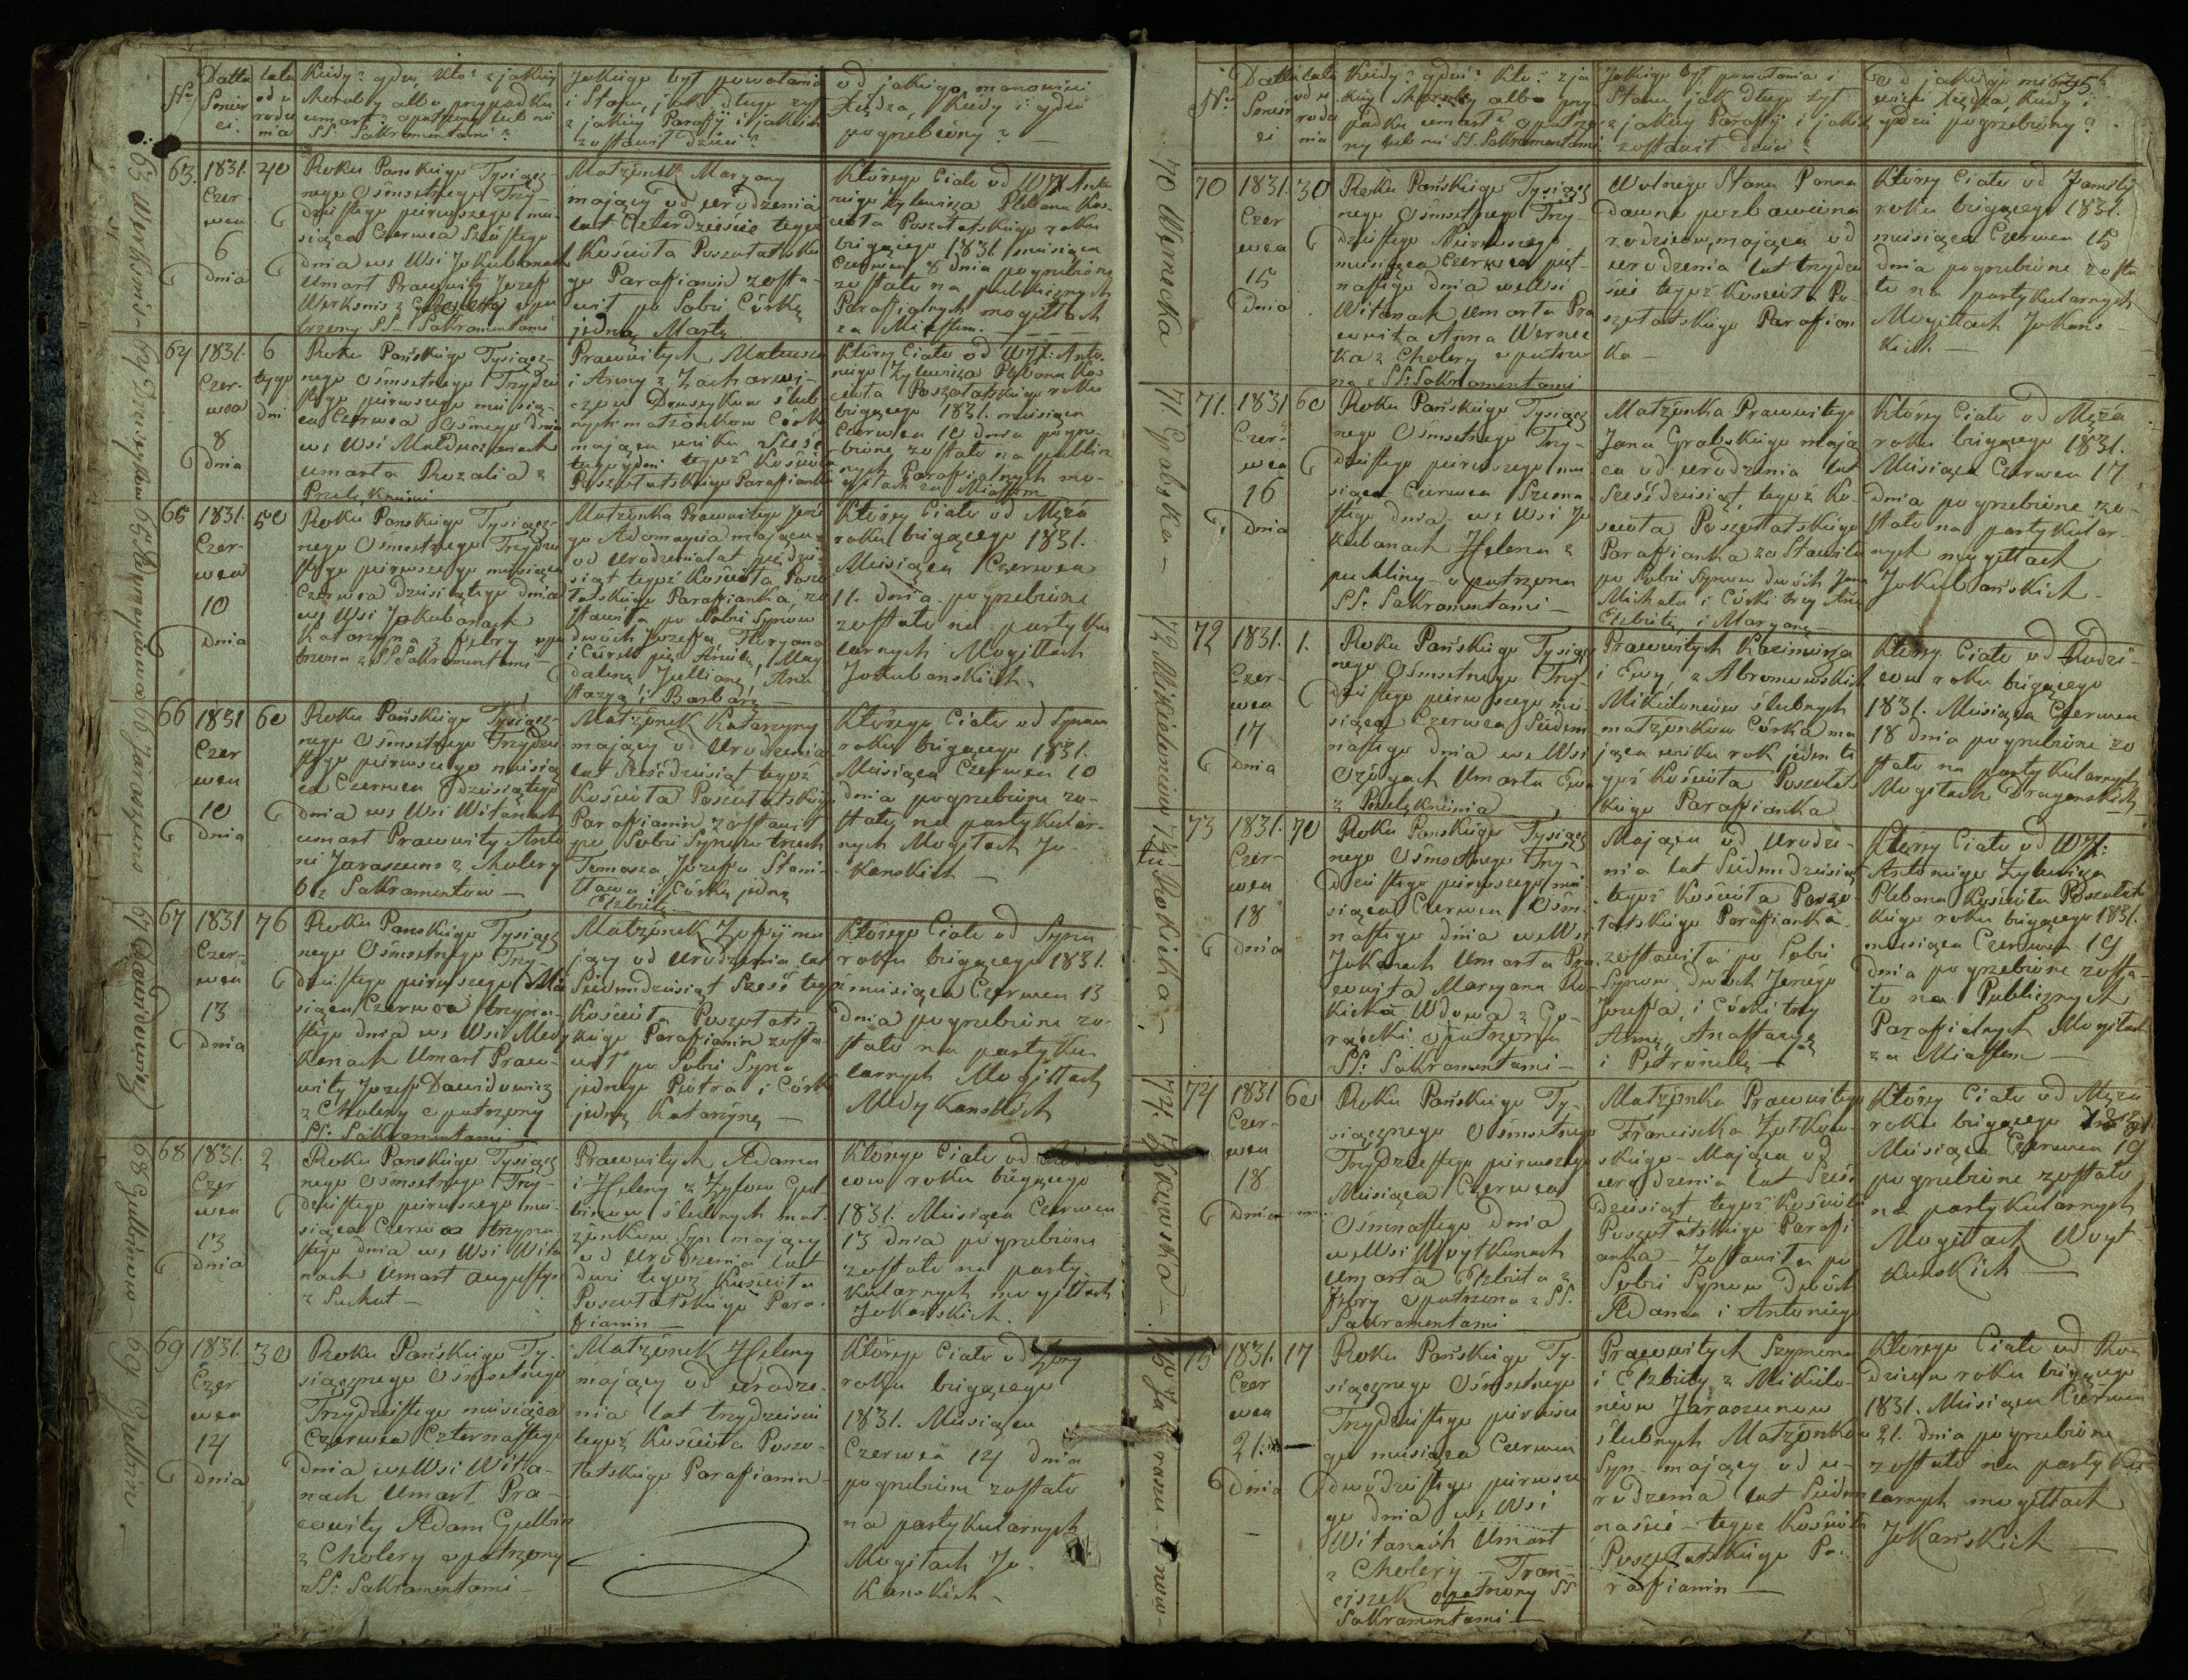 Nro
Datta Śmierci
lata od urodzenia
Kiedy? gdzie? kto? z jakiey
choroby albo przypadku
umarł? opatrzony lub nie
SS. Sakramentami?
Jakiego był powołania
i Stanu, jak długo żył
z jakiey Parafii i jakich
zostawił dzieci?
od jakiego mianowicie
Xiędza, kiedy i gdzie
pogrzebiony?
63. 1831. Czerwca 6 dnia
40
Roku Pańskiego Tysiącz-
nego Ośmsetnego Trzy-
dziestego pierwszego mie-
siąca Czerwca Szóstego
dnia we Wsi Jakubanach
Umarł Prawowity Jozef
Werksnis z Cholery opa-
trzony SS. Sakramentami
Małżonek Maryany
mający od urodzenia
lat Czterdzieście tegoż
Kościoła Poszołatskie-
go Parafianin zosta-
wił po Sobie Córkę
jedną Martę
Którego Ciało od WX Anto-
niego Zylewicza Plebana Koś-
cioła Poszołatskiego roku
bieżącego 1831 miesiąca
Czerwca 8 dnia pogrzebione
zostało na publicznych
Parafialnych mogiłłach
za Miastem.
64 1831. Czerwca 8 dnia
6 tygodni
Roku Pańskiego Tysiącz-
nego Ośmsetnego Trzydzie-
stego pierwszego miesią-
ca Czerwca Osmego dnia
we Wsi
umarła Rozalia z
Przelęknienia
Prawowitych Mateusza
i Anny z Zacharewi-
czow ślub-
nych małżonkow Córka
mająca wieku sześć
tygodni tegoż Kościoła
Poszołatskiego Parafianka
Którey Ciało od WX: Anto-
niego Zylewicza Plebana Koś-
cioła Poszołatskiego roku
bieżącego 1831. miesiąca
Czerwca 10 dnia pogrze-
bione zostało na publicz-
nych Parafialnych mo-
giłłach za Miastem
65 1831. Czerwca 10 Dnia
50
Roku Pańskiego Tysiącz-
nego Ośmsetnego Trzydzie-
stego pierwszego miesiąca
Czerwca dziesiątego dnia
we Wsi Jakubanach
Katarzyna z febry opa-
trzona z SS Sakramentami
Małżonka Prawowitego Jerze-
go mająca
od Urodzenia lat pięćdzie-
siąt tegoż Kościoła Poszo-
łatskiego Parafianka, zo-
stawiła po Sobie Synow
dwóch Jozefa, Floryana
i Córek pięć Anielę, Mag-
dalenę Jullianę, Ana-
stazyą i Barbarę
Którey Ciało od Męża
roku bieżącego 1831.
Miesiąca Czerwca
11. dnia pogrzebione
zostało na partyku-
larnych Mogiłłach
Jakubanskich
66 1831 Czerwca 10 dnia
60
Roku Pańskiego Tysiącz-
nego Ośmsetnego Trzydzie-
stego pierwszego miesią-
ca Czerwca dziesiątego
dnia we Wsi Witanach
umarł Prawowity Anto-
ni Jaraszuns z cholery
bez Sakramentow
Małżonek Katarzyny
mający od Urodzenia
lat Sześćdziesiąt tegoż
Kościoła Poszołatskiego
Parafianin zostawił
po Sobie Synow trzech
Tomasza, Jozefa Stani-
sława i Córkę jedną
Elżbietę
Którego Ciało od Synow
roku bieżącego 1831.
Miesiąca Czerwca 10
dnia pogrzebione zo-
stały na partykular-
nych Mogiłach Jo-
kanskich
67 1831 Czerwca 13 Dnia
76
Roku Pańskiego Tysiącz-
nego Ośmsetnego Trzy-
dziestego pierwszego Mie-
siąca Czerwca trzyna-
stego dnia we Wsi Medy-
kanach Umarł Prawo-
wity Jozef Dawidowicz
z Cholery opatrzony
SS: Sakramentami
Małżonek Zofiji ma-
jący od Urodzenia lat
Siedmdziesiąt Sześć tegoż
Kościoła Poszołats-
kiego Parafianin zosta-
wił po Sobie Syna
jednego Piotra i Córkę
jedną Katarzynę
Którego Ciało od Syna
roku bieżącego 1831.
miesiąca Czerwca 13
dnia pogrzebione zo-
stało na partyku-
larnych Mogiłłach
Medykanskich
68 1831. Czerwca 13 dnia
2
Roku Pańskiego Tysiącz-
nego Ośmsetnego Trzy-
dziestego pierwszego mie-
siąca Czerwca trzyna-
stego dnia we Wsi Wita-
nach Umarł Augustyn
z Suchot
Prawowitych Adama
i Heleny z Zyłow Gul-
binow ślubnych mał-
żonkow Syn mający
od Urodzenia lat
dwie tegoż Kościoła
Poszołatskiego Para-
fianin
Którego Ciało od
cow roku bieżącego
1831. Miesiąca Czerwca
13 dnia pogrzebione
zostało na party-
kularnych mogiłłach
Jokanskich.
69 1831. Czerwca 14 dnia
30
Roku Pańskiego Ty-
siącznego Ośmsetnego
Trzydziestego miesiąca
Czerwca Czternastego
Dnia we Wsi Wita-
nach Umarł Pra-
wowity Adam Gulbin
z Cholery opatrzony
SS: Sakramentami
Małżonek Heleny
mający od urodze-
nia lat trzydzieści
tegoż Kościoła Poszo-
łatskiego Parafianin
Którego Ciało od Żony
roku bieżącego
1831. Miesiąca
Czerwca 14 dnia
pogrzebione zostało
na partykularnych
Mogiłach Jo-
kanskich
63 Werksnis 66 Jaraszuns 67 Dawidowicz 68 Gulbinow 69 Gulbin
Nro
Datta Śmierci
lata od urodzenia
Kiedy? gdzie? Kto? z ja-
kiey choroby albo przy-
padku umarł? opatrzo-
ny lub nie SS. Sakramentami
Jakiego był powołania i
Stanu, jak długo żył
z jakiey Parafii i jakich
zostawił dzieci?
Od jakiego miano-
wicie Xiędza, kiedy i
gdzie pogrzebiony?
70 1831. Czerwca 15 Dnia
30
Roku Pańskiego Tysiącz-
nego Ośmsetnego Trzy-
dziestego Pierwszego
miesiąca Czerwca pięt-
nastego dnia we Wsi
Witanach Umarła Pra-
wowita Anna Wernec-
ka z Cholery opatrzo-
na z SS: Sakramentami
Wolnego Stanu Panna
dawno pozbawiona
rodzicow, mająca od
urodzenia lat trzydzie-
ści tegoż Kościoła Po-
szołatskiego Parafian-
ka
Którey Ciało od Familij
roku bieżącego 1831.
miesiąca Czerwca 15
dnia pogrzebione zosta-
ło na partykularnych
Mogiłłach Jokans-
kich.
71. 1831 Czerwca 16 Dnia
60
Roku Pańskiego Tysiącz-
nego Ośmsetnego Trzy-
dziestego pierwszego mie-
siąca Czerwca Szesna-
stego dnia we Wsi Ja-
kubanach Helena z
puchliny opatrzona
SS: Sakramentami
Małżonka Prawowitego
Jana Grabskiego mają-
ca od urodzenia lat
Sześćdziesiąt, tegoż Ko-
ścioła Poszołatskiego
Parafianka zostawiła
po Sobie Synow dwóch Jana
Michała i Córki trzy Annę
Elżbietę, i Maryanę
Którey Ciało od Męża
roku bieżącego 1831.
Miesiąca Czerwca 17
dnia pogrzebione zo-
stało na partykular-
nych mogiłłach
Jakubańskich
72 1831. Czerwca 17 Dnia
1.
Roku Pańskiego Tysiącz-
nego Ośmsetnego Trzy-
dziestego pierwszego mie-
siąca Czerwca Siedem-
nastego dnia we Wsi
Ozógach Umarła Ewa
z Przelęknienia
Prawowitych Kazimierza
i Ewy z Abramowskich
Mikielonisow ślubnych
małżonkow Córka ma-
jąca wieku rok jeden te-
goż Kościoła Poszołats-
kiego Parafianka
Którey Ciało od Rodzi-
cow roku bieżącego
1831. Miesiąca Czerwca
18 dnia pogrzebione zo-
stało na partykularnych
Mogiłach Draganskich
73 1831. Czerwca 18 dnia
70
Roku Pańskiego Tysiącz-
nego Ośmsetnego Trzy-
dziestego pierwszego mie-
siąca Czerwca Ośm-
nastego dnia we Wsi
Jokanach Umarła Pra-
wowita Maryana Ro-
kicka Wdowa z Go-
rączki opatrzona
SS: Sakramentami
Mająca od Urodze-
nia lat Siedmdziesiąt
tegoż Kościoła Poszo-
łatskiego Parafianka
zostawiła po Sobie
Synow dwóch Jerzego
Jozefa, i Córki trzy
Annę, Anastazyą
i Petronellę
Którey Ciało od WX:
Antoniego Zylewicza
Plebana Kościoła Poszołats-
kiego roku bieżącego 1831.
miesiąca Czerwca 19
dnia pogrzebione zosta-
ło na Publicznych
Parafialnych Mogiłach
za Miastem
74 1831 Czerwca 18 Dnia
60
Roku Pańskiego Ty-
siącznego Ośmsetnego
Trzydziestego pierwszego
Miesiąca Czerwca
Ośmnastego dnia
we Wsi Woytkunach
Umarła Elżbieta z
febry opatrzona z SS.
Sakramentami
Małżonka Prawowitego
Franciszka Zołkow-
skiego Mająca od
urodzenia lat Sześć-
dziesiąt tegoż Kościoła
Poszołatskiego Parafi-
anka Zostawiła po
Sobie Synow Dwóch
Adama i Antoniego
Którey Ciało od Męża
roku bieżącego
Miesiąca Czerwca 19
pogrzebione zostało
na partykularnych
Mogiłach Woyt-
kunskich
75 1831. Czerwca 21. Dnia
17
Roku Pańskiego Ty-
siącznego Ośmsetnego
Trzydziestego pierwsze-
go miesiąca Czerwca
dwódziestego pierwsze-
go dnia we Wsi
Witanach Umarł
z Cholery Fran-
ciszek opatrzony SS
Sakramentami
Prawowitych Szymona
i Elżbiety z Mikielo-
nisow Jaraszunow
ślubnych Małżonkow
Syn mający od u-
rodzenia lat Siedm-
naście tegoż Kościoła
Poszołatskiego Pa-
rafianin
Którego Ciało od Ro-
dzicow roku bieżącego
1831. Miesiąca Czerwca
21. dnia pogrzebione
zostało na partyku-
larnych mogiłłach
Jokańskich
70 Wernecka 71 Grabska 73 Rokicka